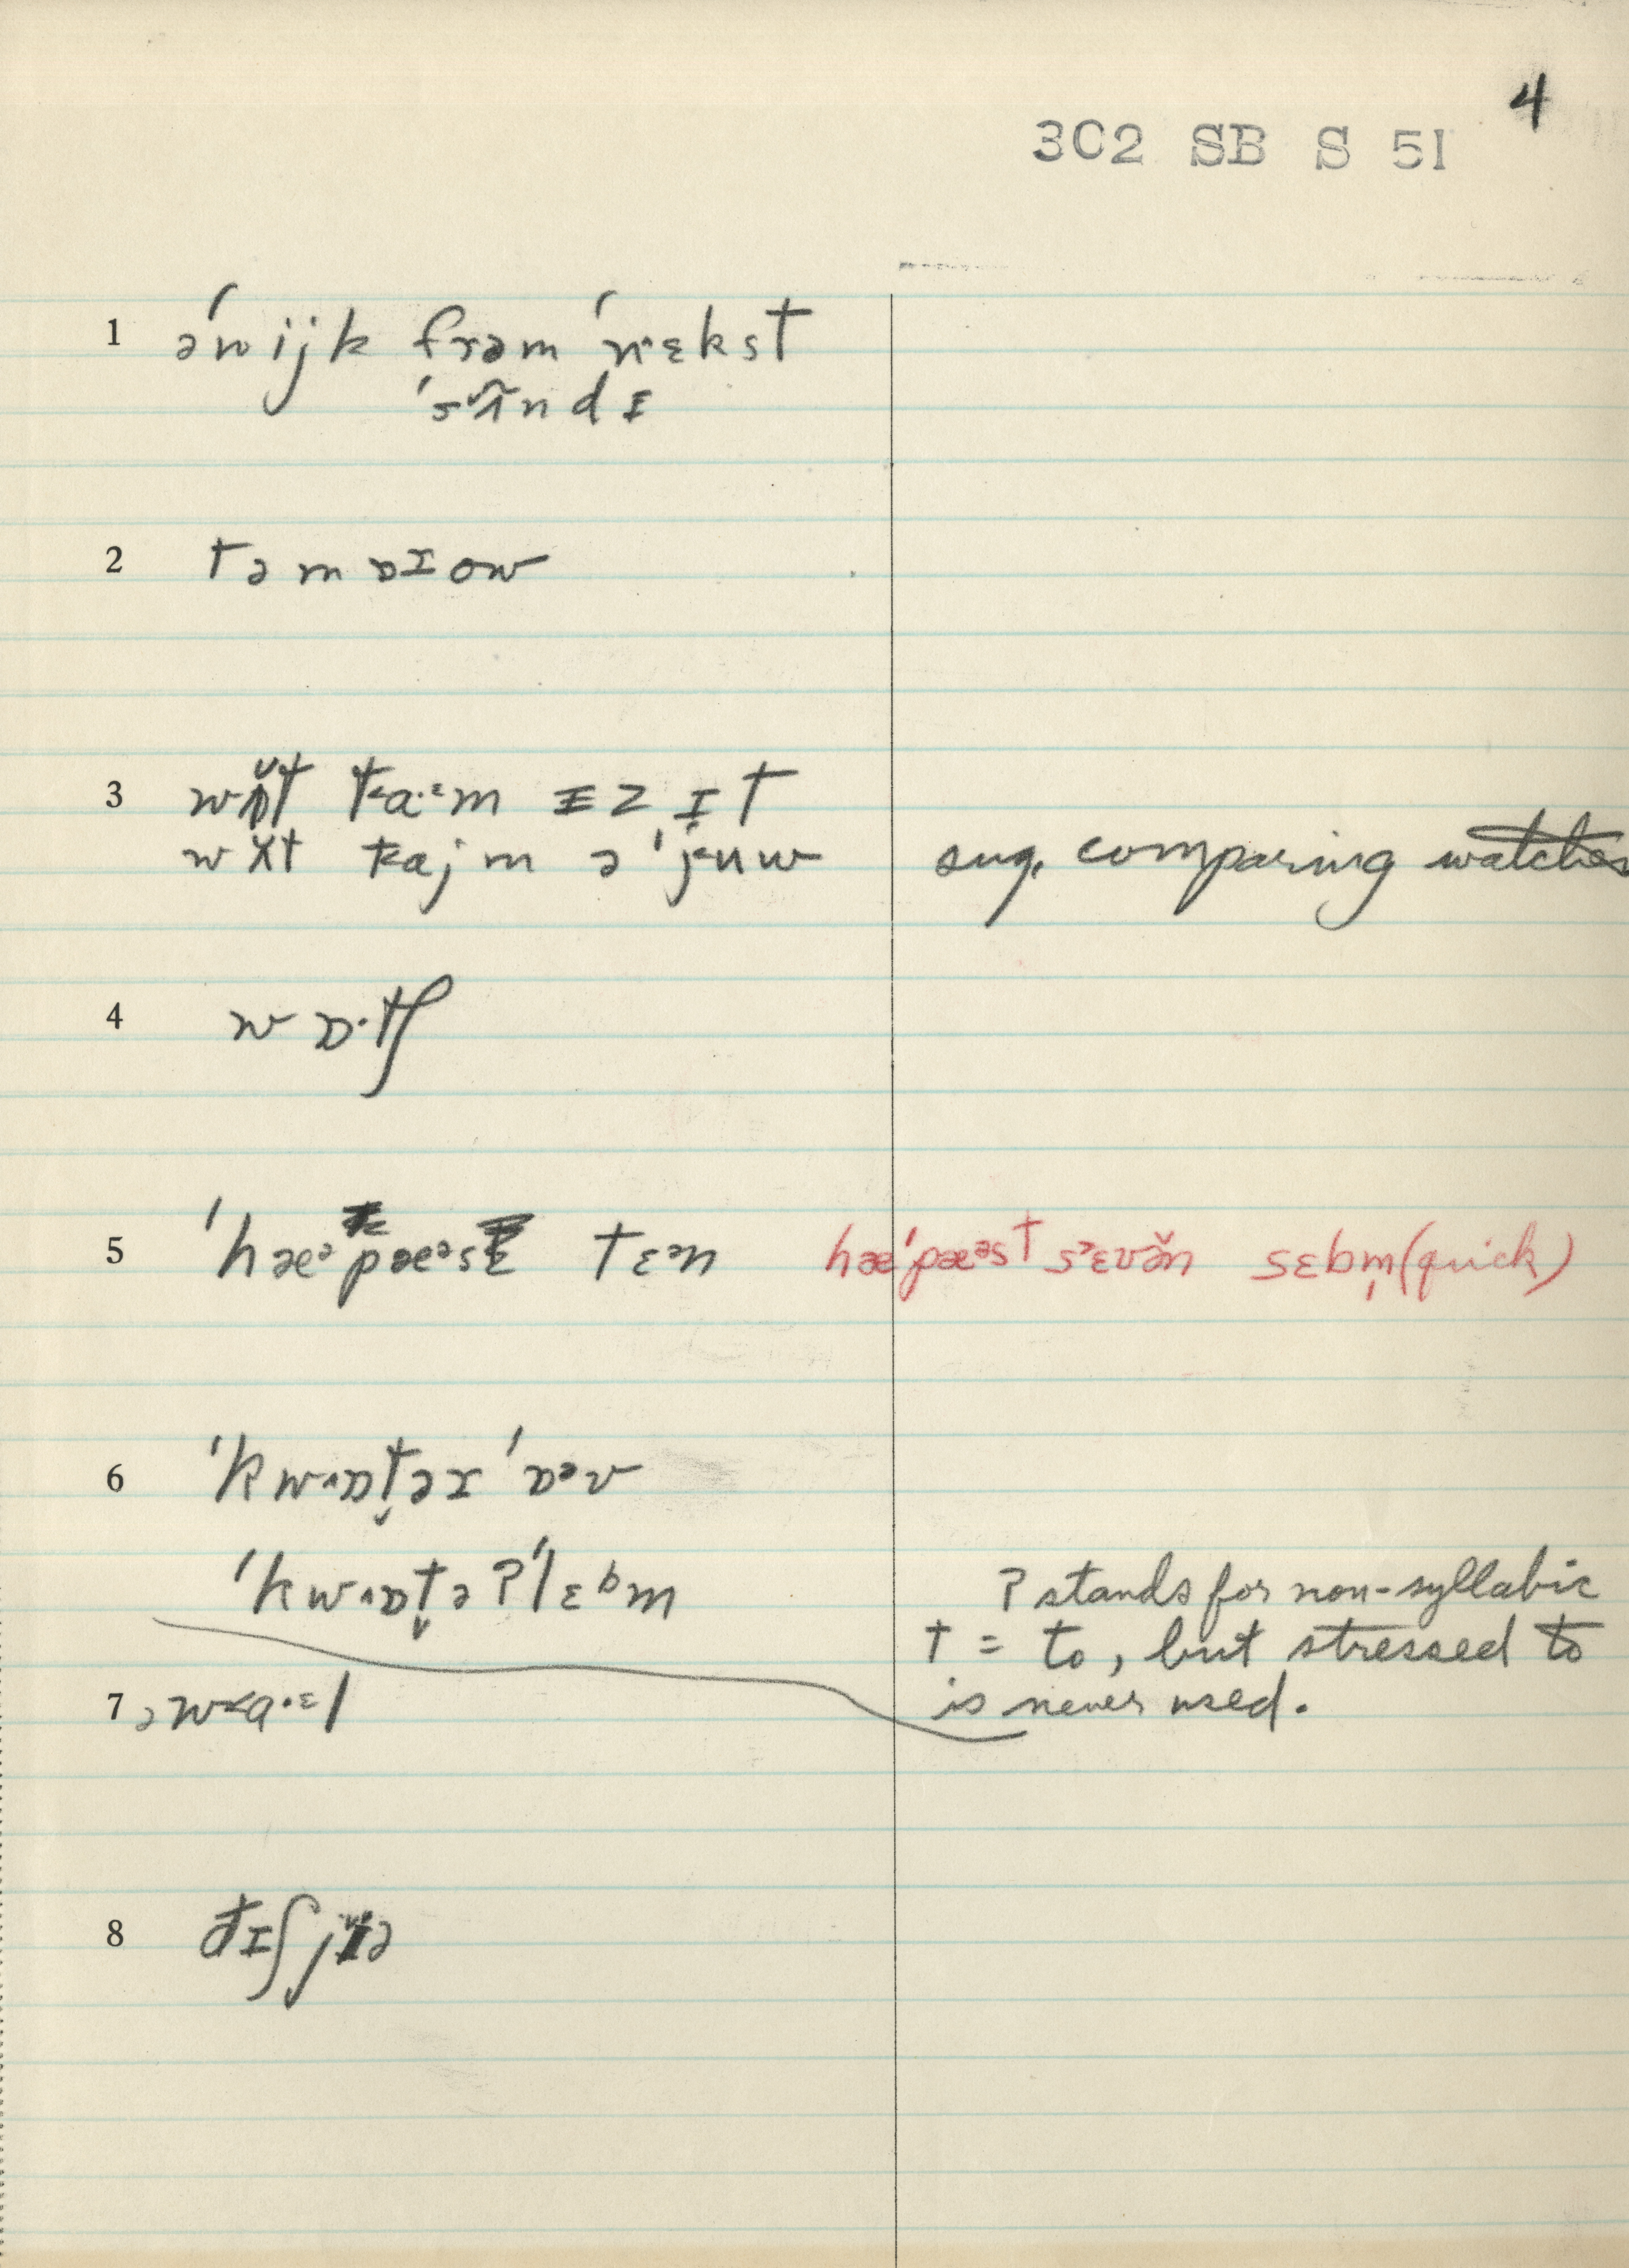 4
302 SB S 51
1 ə'wijk frəm 'nɛkst
'sʌndɪ
2 təmɒɪow
3 wɒt ta·ᵋm ɪz ɪt
tajm ə 'juw sug. comparing watches
4 wɒ·tʃ
5 'hæᵊpæᵊst tɛᵊn hæ'pæᵊst sᵊɛvə̆n sɛbm̩ (quick)
6 'kwɒt̬əɪ 'ɒᵊv
'kwɒt̬əʔ'lɛᵇm ʔ stands for non-syllabic
t = to, but stressed to
is never used.
7 əw<a·ᵋl
8 ðɪʃ